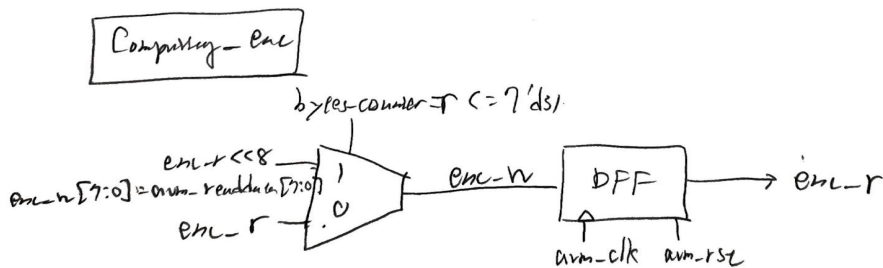 enc
bytes_counter_r <= 7'd31
enc_r<<8
1
enc_w[7:0] = avm_readdata[7:0]
0
enc_r
enc_w
DFF
enc_r
avm_clk avm_rst